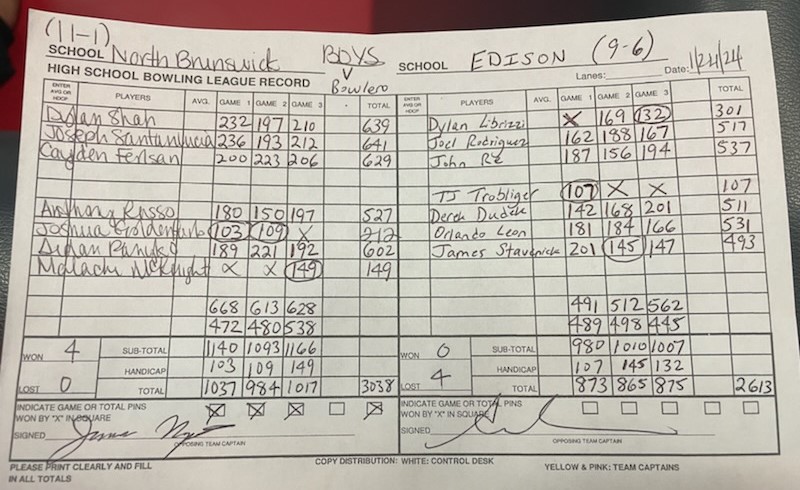 (11-1)
SCHOOL North Brunswick BOYS
Bowlero
SCHOOL EDISON (9-6)
HIGH SCHOOL BOWLING LEAGUE RECORD
Lanes: Date: 1/24/24
ENTER AVG OR HDCP PLAYERS AVG. GAME 1 GAME 2 GAME 3 TOTAL ENTER AVG OR HDCP PLAYERS AVG. GAME 1 GAME 2 GAME 3 TOTAL
Dylan Shah 232 197 210 639 Dylan Librizzi X 169 132 301
Joseph Santanlucia 236 193 212 641 Joel Rodriguez 162 188 167 517
Cayden Fensan 200 223 206 629 John Re 187 156 194 537
TJ Trobliger 107 X X 107
Anthony Russo 180 150 197 527 Derek Dudek 142 168 201 511
Joshua Goldenfarb 103 109 X 212 Orlando Leon 181 184 166 531
Aidan 189 221 192 602 James Stavenick 201 145 147 493
Malachi McKnight X X 149 149
668 613 628 491 512 562
472 480 538 489 498 445
WON 4 SUB-TOTAL 1140 1093 1166 WON 0 SUB-TOTAL 980 1010 1007
HANDICAP 103 109 149 HANDICAP 107 145 132
LOST 0 TOTAL 1037 984 1017 3038 LOST 4 TOTAL 873 865 875 2613
INDICATE GAME OR TOTAL PINS WON BY "X" IN SQUARE X X X X INDICATE GAME OR TOTAL PINS WON BY "X" IN SQUARE
SIGNED SIGNED
OPPOSING TEAM CAPTAIN OPPOSING TEAM CAPTAIN
PLEASE PRINT CLEARLY AND FILL IN ALL TOTALS COPY DISTRIBUTION: WHITE: CONTROL DESK YELLOW & PINK: TEAM CAPTAINS